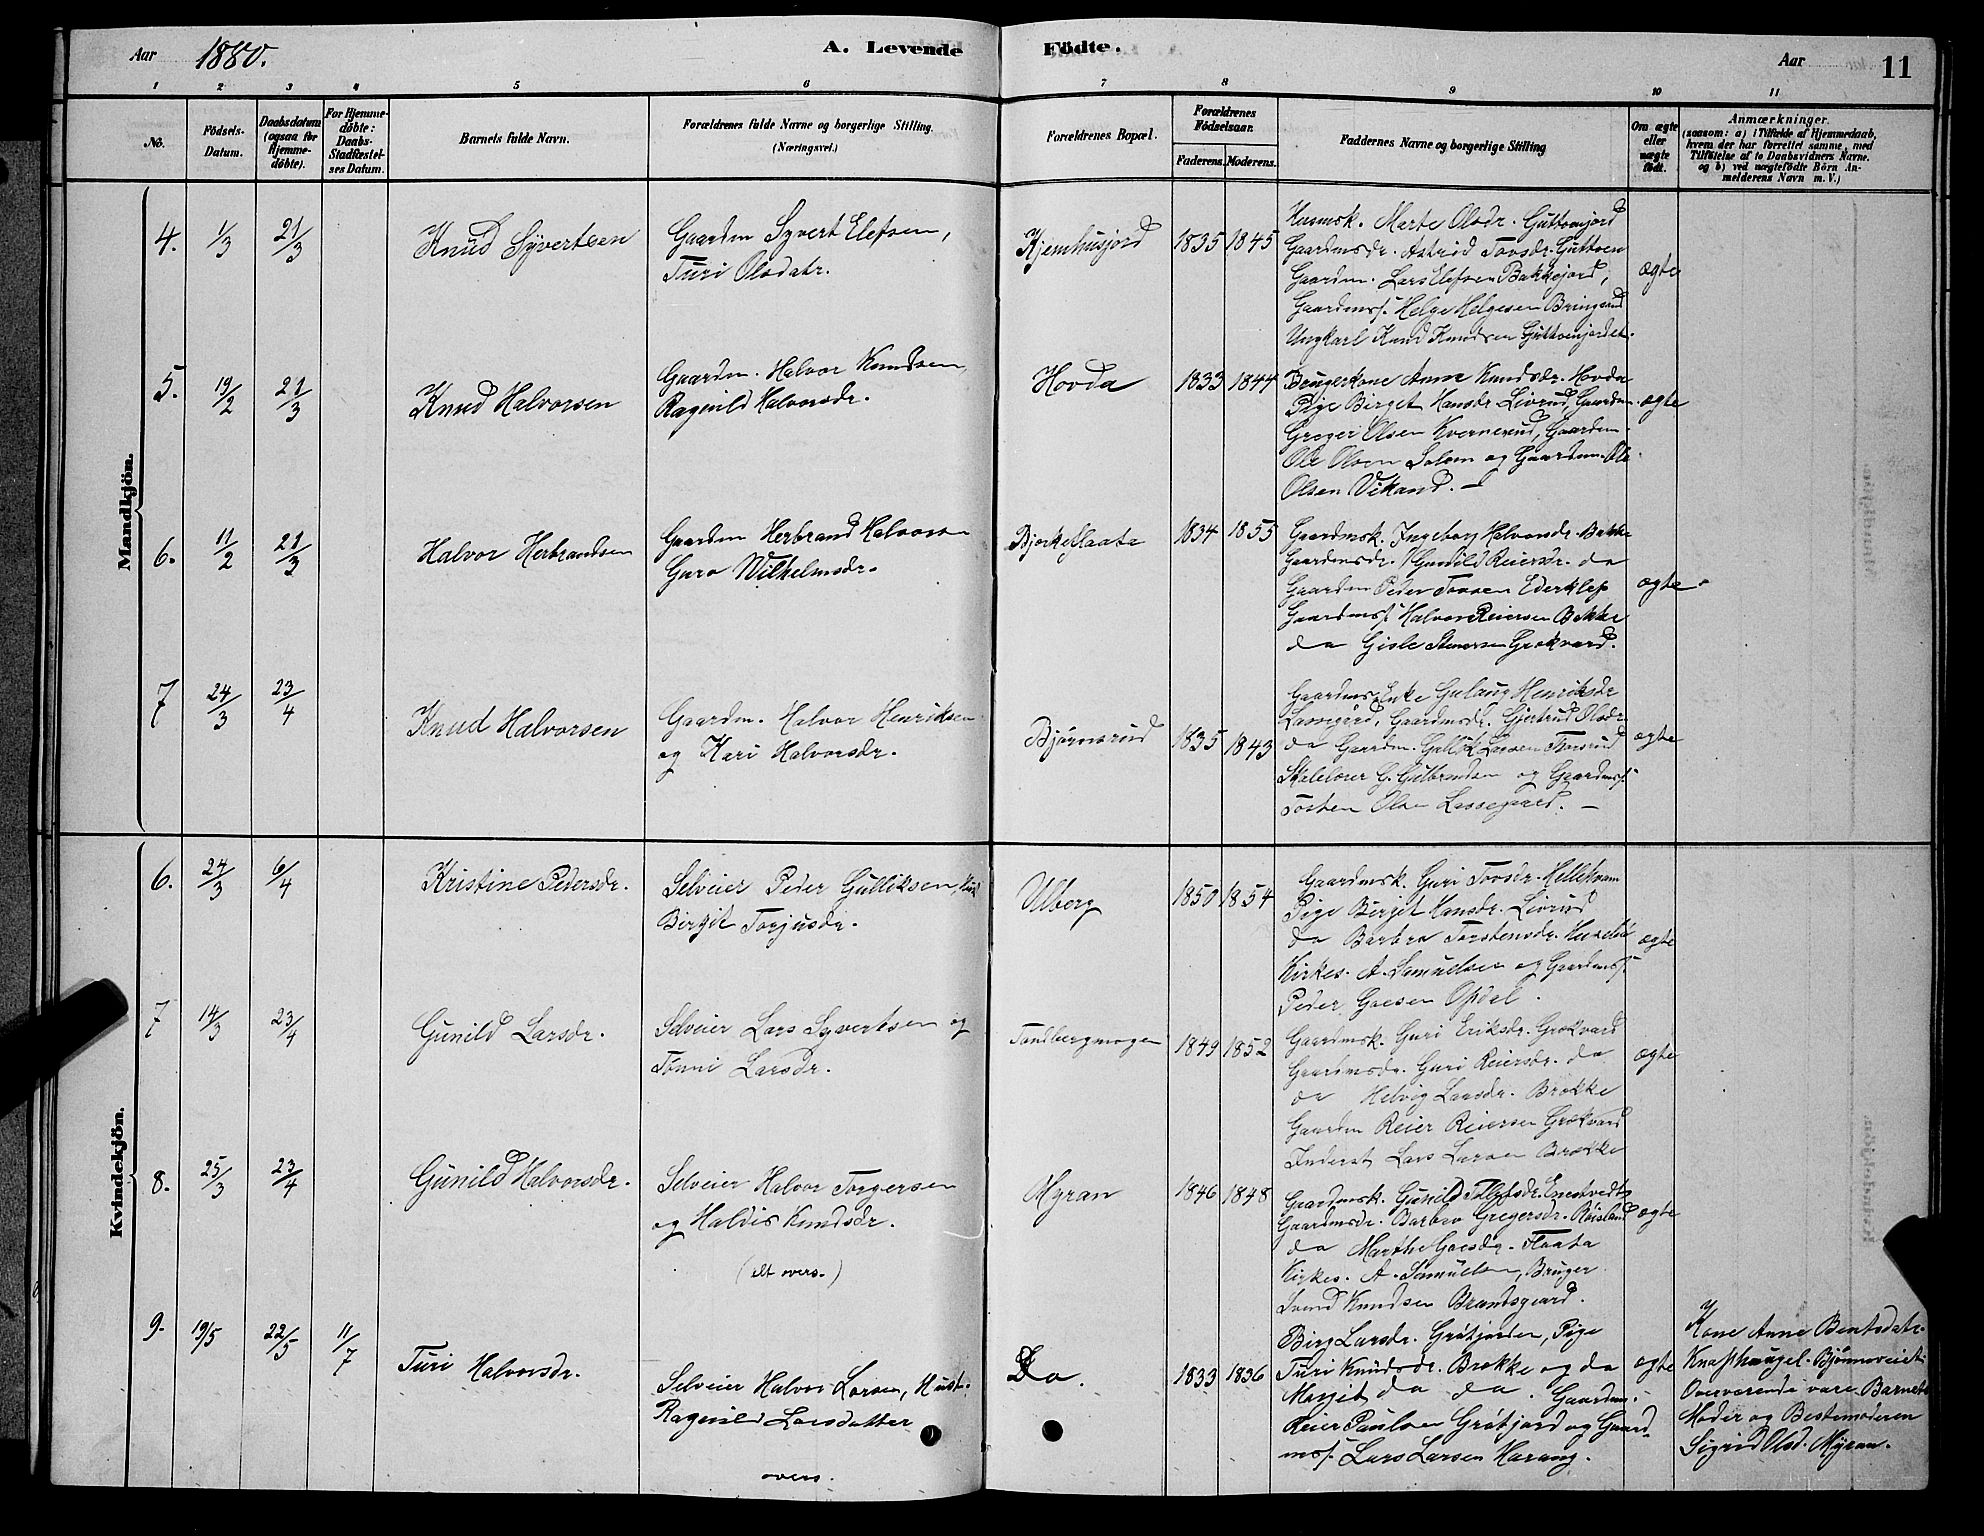 Aar 1880. A. Levende Födte. Aar 11
1 2 3 4 5 6 7 8 9 10 11
No. Födsels-Datum. Daabsdatum (ogsaa for Hjemme-döbte). For Hjemme-döbte: Daabs-Stadfæstel-ses Datum. Barnets fulde Navn. Forældrenes fulde Navne og borgerlige Stilling. (Næringsvei.) Forældrenes Bopæl. Forældrenes Födselsaar. Faderens. Moderens. Faddernes Navne og borgerlige Stilling Om ægte eller uægte födt. Anmærkninger. (saasom: a) i Tilfælde af Hjemmedaab, hvem der har forrettet samme, med Tilföielse af to Daabsvidners Navne. og b) ved uægtefödte Börn An-melderens Navn m. V.)
Mandkjön.
4. 1/3 21/3 Knud Syvertsen
Gaardm Syvert Elefsen,
Turi Olsdatr.
Kjemhusjord 1835 1845
Husmsk. Marte Olsdr. Guttormjord
Gaardmsdr. Astrid Tovsdr. Guttoen
Gaardm. Lars Elefsen Bakkejord,
Gaardmss. Helge Helgesen Bringsund
Ungkarl Knud Knudsen Guttenjordet.
ægte
5. 19/2 21/3 Knud Halvorsen
Gaardm. Halvor Knudsen,
Ragnild Halvorsdr.
Hovda 1833 1844
Brugerkone Anne Knudsdr. Hovda
Pige Birget Hansdr Livrud, Gaardm.
Greger Olsen Kvernerud, Gaardm.
Ole Olsen Solem og Gaardm. Ole
Olsen Vikand. –
ægte
6. 11/2 21/3 Halvor Herbrandsen
Gaardm Herbrand Halvorsen
Guro Wilhelmsdr.
Bjerkeflaata 1834 1855
Gaardmsk. Ingeborg Halvorsdr. Bakke
Gaardmsdr. Gunild Reiersdr. do
Gaardm Peder Tovsen Ederklep
Gaardmss. Halvor Reiersen Bakke
do Gisle Stenersen Grokvard.
ægte
7 24/3 23/4 Knud Halvorsen
Gaardm. Halvor Henriksen
og Kari Halvorsdr.
Bjørnsrud 1835 1843
Gaardms. Enke Gulaug Henriksdr
Lassegård, Gaardmsdr. Gjertrud Olsdr
da Gaardm. Gullik Larsen Thorsrud
Skolelærer G. Gulbrandsen og Gaardmss.
Tosten Olsen Lassegaard. –
ægte
Kvindekjön.
6. 24/3 6/4 Kristine Pedersdr.
Selveier Peder Gulliksen, Hust
Birgit Torjusdr.
Ulberg 1850 1854
Gaardmsk. Guri Tovsdr. Hellekvam
Pige Birgit Hansdr. Livrud
do Barbro Torstensdr.
Kirkes. A. Samuelsen og Gaardmss.
Peder Goesen Opdal.
ægte
7 14/3 23/4 Gunild Larsdr.
Selveier Lars Syvertsen og
Tønni Larsdr.
Tandbergmogen 1849 1852
Gaardmsk. Guri Eriksdr. Grokvard
Gaardmsdr. Guri Reiersdr. do
do Helvig Larsdr. Brøkke
Gaardm Reier Reiersen Grokvard
Inderst Lars Larsen Brøkke
ægte
8. 25/3 23/4 Gunild Halvorsdr.
Selveier Halvor Torgersen
og Haldis Knudsdr.
(elt overs.)
Myran 1846 1848
Gaardmsk. Gunild Tollefsdr. Enestvedt
Gaardmsdr. Barbro Gregersdr. Röisland
do Marthe Goesdr. Flaata
Kirkes. A. Samuelsen, Bruger
Svend Knudsen Brandsgaard.
ægte
9. 19/5 22/5 11/7 Turi Halvorsdr.
Selveier Halvor Larsen, Hust.
Ragnild Larsdatter
overs.
Do. 1833 1836
Birg Larsdr. Grötjorden, Pige
Turi Knudsdr. Brøkke og do
Margit do do. Gaardm.
Reier Paulsen Grötjord og Gaard-
mss. Lars Larsen Harang.
ægte
Kone Anne Bentsdatr.
Knaphaugel. Bjønnoveiet
Overværende vare Barnets
Moder og Bestemoderen
Sigrid Olsd. Myran.